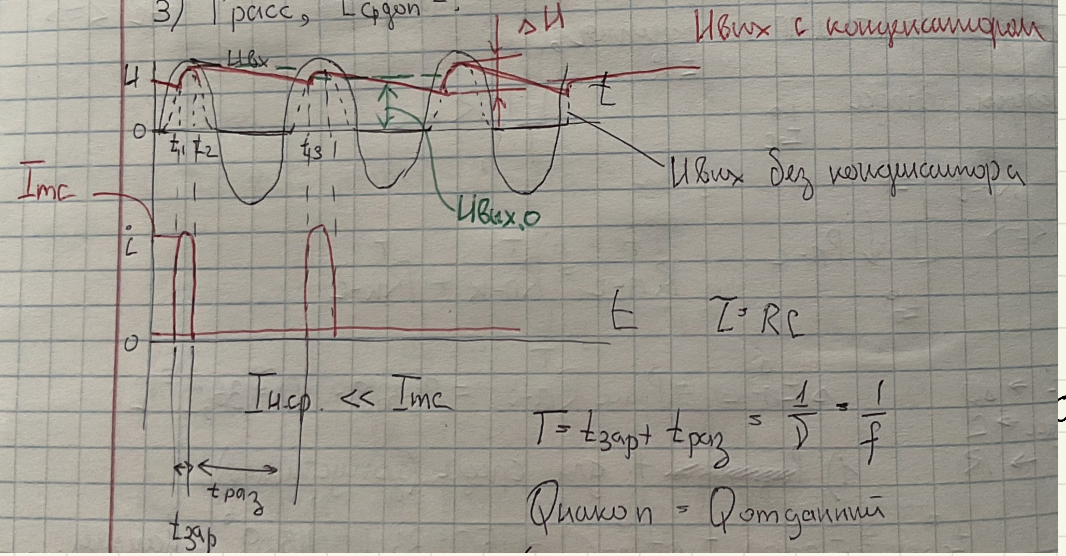 3) Pрасс, Iсрдоп
ΔU
Uвих с конденсатором
U
Uвх
t
0
t1 t2 t3
Uвих без конденсатора
Imc
Uвих.0
i
t
τ = RC
0
Iнср. << Imc
T = tзар + tраз = 1/ν = 1/f
tраз
Qнакоп = Qотданний
tзар